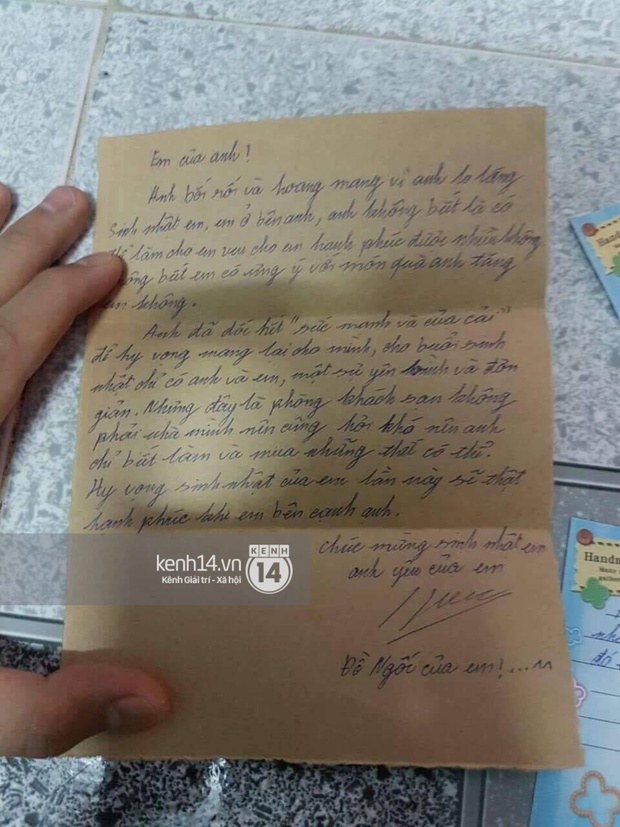 Em của anh!
Anh bối rối và hoang mang vì anh lo lắng
Sinh nhật em, em ở bên anh, anh không biết là có
thể làm cho em vui cho em hạnh phúc được nhiều không
không biết em có ưng ý với món quà anh tặng
em không.
Anh đã dốc hết "sức mạnh và của cải"
để hy vọng mang lại cho mình, cho buổi sinh
nhật chỉ có anh và em, một sự yên bình và đơn
giản. Nhưng đây là phòng khách sạn không
phải nhà mình nên cũng hơi khó nên anh
chỉ biết làm và mua những thứ có thể.
Hy vọng sinh nhật của em lần này sẽ thật
hạnh phúc khi em bên cạnh anh.
Chúc mừng sinh nhật em
anh yêu của em
Đồ Ngốc của em!...
kenh14.vn
Kênh Giải trí - Xã hội
KENH
14
Hand
Handm
Many
gathe